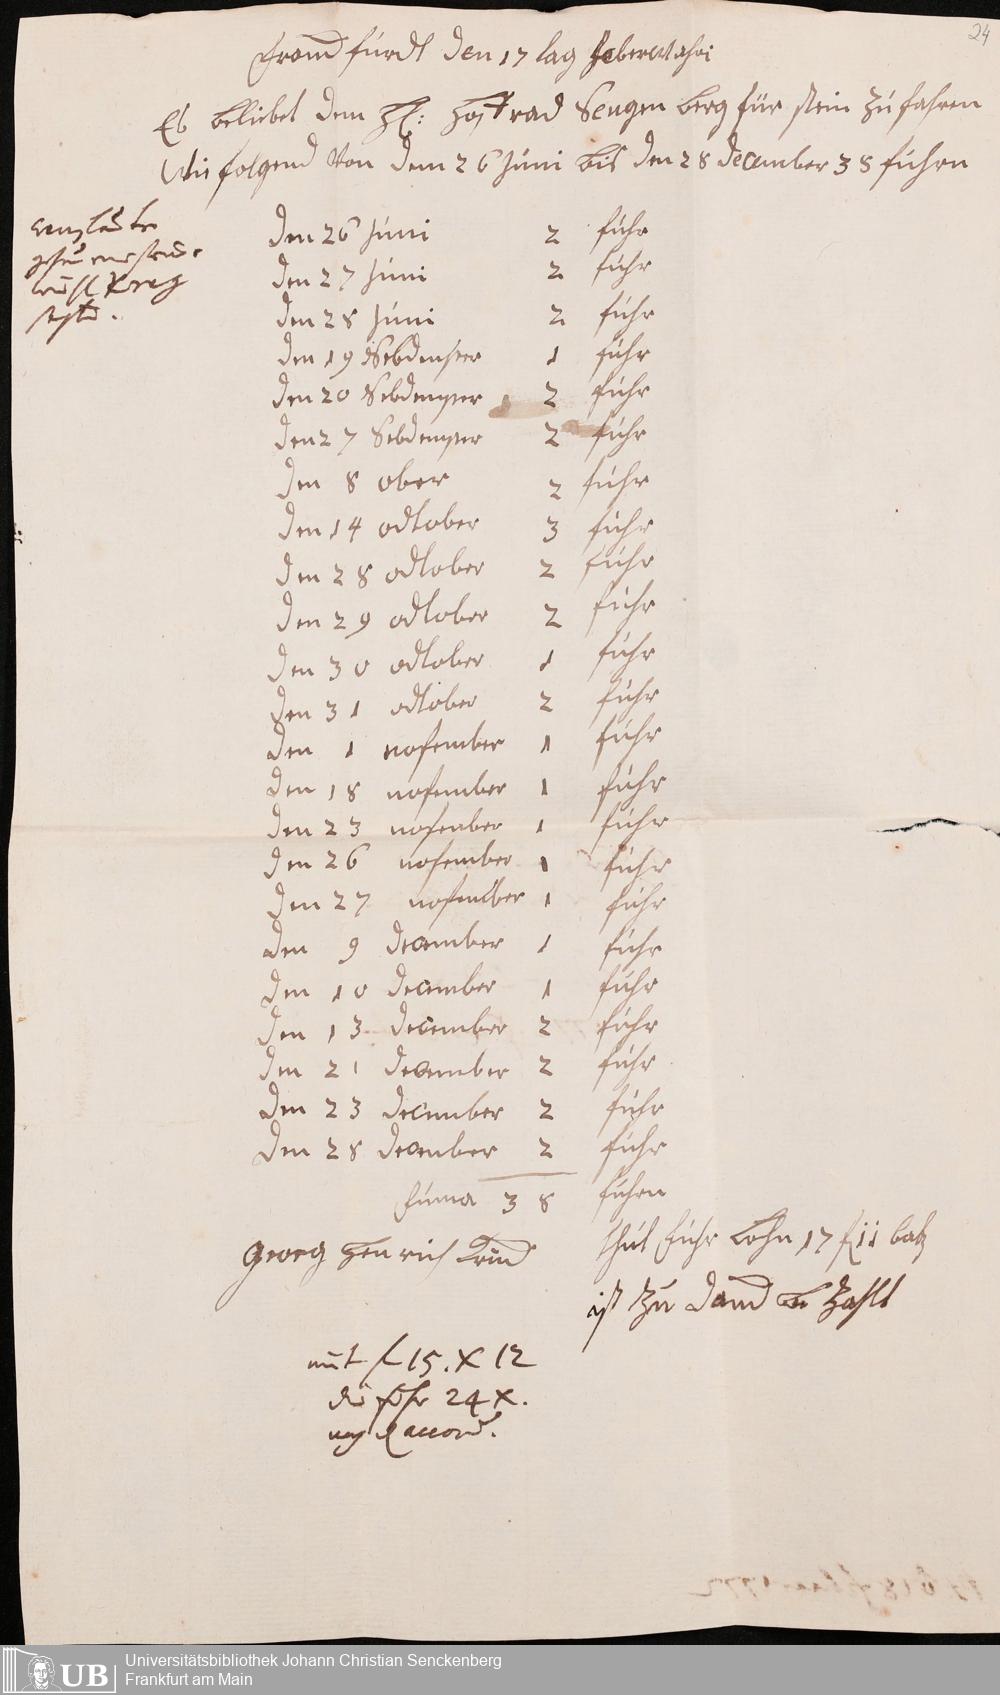 24
Franckfurdt den 17 tag Feberwahri
Es beliebet dem H: Hoffrad Sengen berg für stein zu fahren
Wie folgend Von dem 26 Juni bis den 28 december 38 fuhrn
den 26 Juni 2 fuhr
den 27 Juni 2 fuhr
den 28 Juni 2 fuhr
den 19 Sebdember 1 fuhr
den 20 Sebdember 2 fuhr
den 27 Sebdember 2 fuhr
den 8 ober 2 fuhr
den 14 ocktober 3 fuhr
den 28 ocktober 2 fuhr
den 29 ocktober 2 fuhr
den 30 ocktober 1 fuhr
den 31 ocktober 2 fuhr
den 1 nofember 1 fuhr
den 18 nofember 1 fuhr
den 23 nofember 1 fuhr
den 26 nofember 1 fuhr
den 27 nofember 1 fuhr
den 9 december 1 fuhr
den 10 december 1 fuhr
den 13 december 2 fuhr
den 21 december 2 fuhr
den 23 december 2 fuhr
den 28 december 2 fuhr
Suma 38 fuhrn
thut fuhr Lohn 17 f 11 batz
Georg Henrich
ist zu danck be zahlt
mit f 15. x 12
die fuhr 24 x.
nach accord.
UB
Universitätsbibliothek Johann Christian Senckenberg
Frankfurt am Main